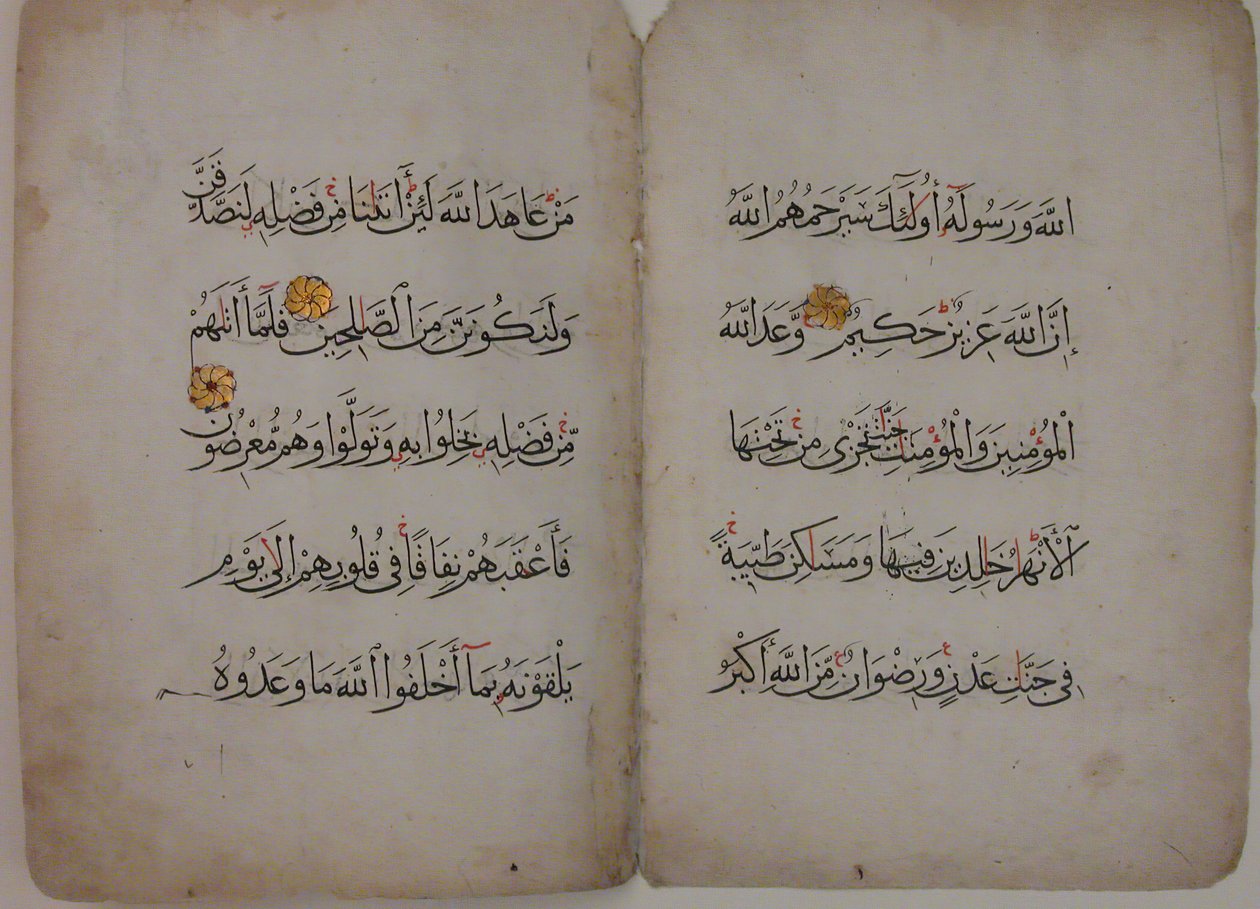 اللَّهَ وَرَسُولَهُ أُولَٰئِكَ سَيَرْحَمُهُمُ اللَّهُ
إِنَّ اللَّهَ عَزِيزٌ حَكِيمٌ وَعَدَ اللَّهُ
الْمُؤْمِنِينَ وَالْمُؤْمِنَاتِ جَنَّاتٍ تَجْرِي مِن تَحْتِهَا
الْأَنْهَارُ خَالِدِينَ فِيهَا وَمَسَاكِنَ طَيِّبَةً
فِي جَنَّاتِ عَدْنٍ وَرِضْوَانٌ مِّنَ اللَّهِ أَكْبَرُ
مَنْ عَاهَدَ اللَّهَ لَئِنْ آتَانَا مِن فَضْلِهِ لَنَصَّدَّقَنَّ
وَلَنَكُونَنَّ مِنَ الصَّالِحِينَ فَلَمَّا آتَاهُمْ
مِّن فَضْلِهِ بَخِلُوا بِهِ وَتَوَلَّوْا وَهُم مُّعْرِضُونَ
فَأَعْقَبَهُمْ نِفَاقًا فِي قُلُوبِهِمْ إِلَىٰ يَوْمِ
يَلْقَوْنَهُ بِمَا أَخْلَفُوا اللَّهَ مَا وَعَدُوهُ